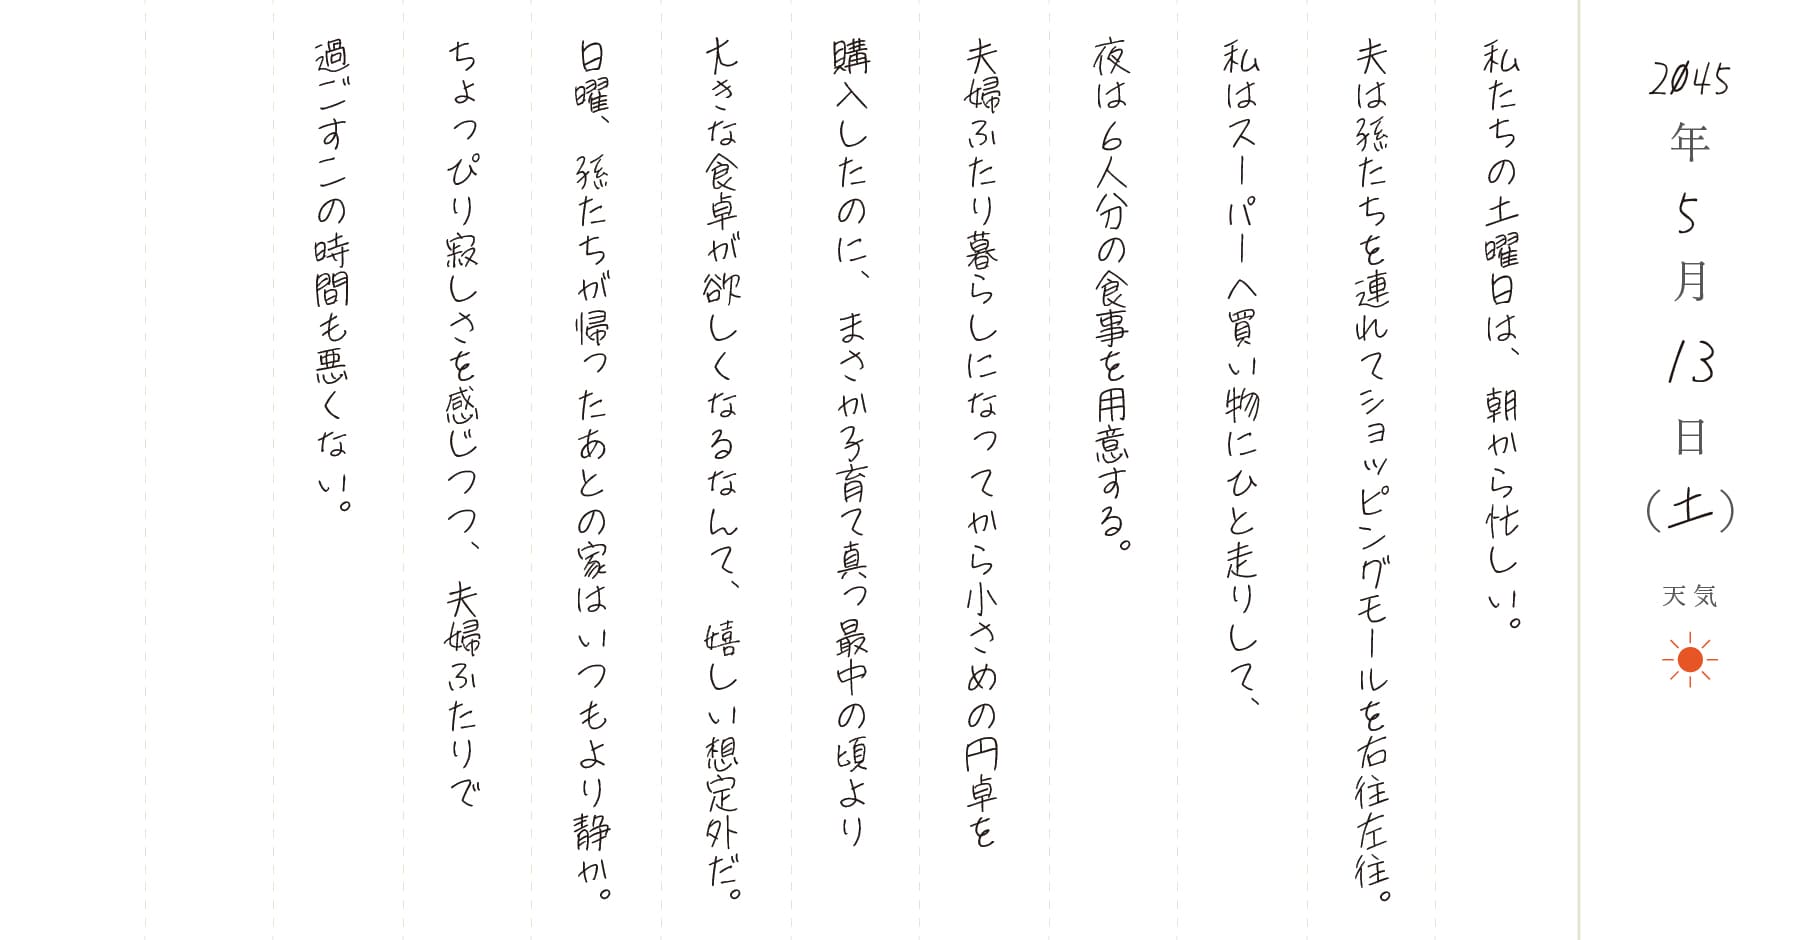 2045年5月13日(土)
天気
私たちの土曜日は、朝から忙しい。
夫は孫たちを連れてショッピングモールを右往左往。
私はスーパーへ買い物にひと走りして、
夜は6人分の食事を用意する。
夫婦ふたり暮らしになってから小さめの円卓を
購入したのに、まさか子育て真っ最中の頃より
大きな食卓が欲しくなるなんて、嬉しい想定外だ。
日曜、孫たちが帰ったあとの家はいつもより静か。
ちょっぴり寂しさを感じつつ、夫婦ふたりで
過ごすこの時間も悪くない。